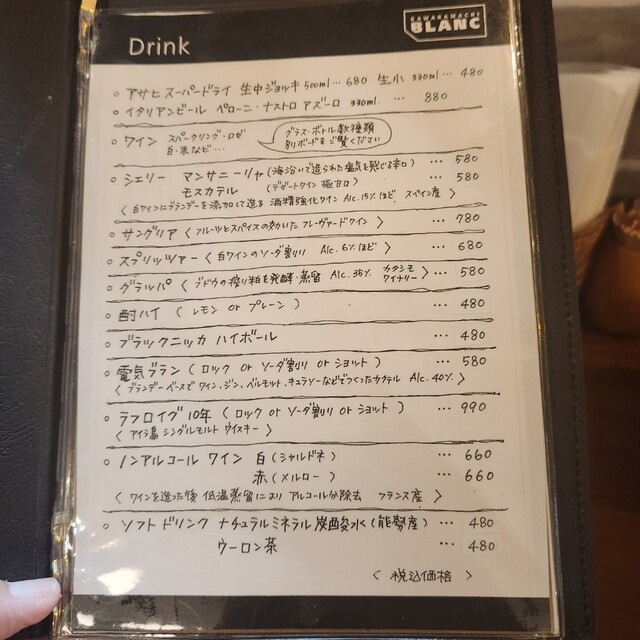 KAWARAMACHI
BLANC
Drink
○ アサヒ スーパードライ 生中ジョッキ 500ml … 680 生小 330ml … 480
○ イタリアンビール ペローニ・ナストロ アズーロ 330ml. … 880
○ ワイン スパークリング・ロゼ
白・赤など…
グラス・ボトル数種類
別ボードをご覧ください
○ シェリー マンサニーリャ (海沿いで造られた塩気を感じる辛口) … 580
モスカテル (デザートワイン 極甘口) … 580
〈 白ワインにブランデーを添加して造る 酒精強化ワイン Alc.15%ほど スペイン産 〉
○ サングリア 〈 フルーツとスパイスの効いた フレーヴァードワイン 〉 … 780
○ スプリッツァー 〈 白ワインのソーダ割り Alc. 6%ほど 〉 … 680
○ グラッパ 〈 ブドウの搾り粕を発酵・蒸留 Alc. 35% カタシモ ワイナリー 〉 … 580
○ 酎ハイ ( レモン or プレーン ) … 480
○ ブラックニッカ ハイボール … 480
○ 電気ブラン ( ロック or ソーダ割り or ショット ) … 580
〈 ブランデーベースで ワイン、ジン、ベルモット、キュラソーなどでつくったカクテル Alc. 40% 〉
○ ラフロイグ 10年 ( ロック or ソーダ割り or ショット ) … 990
〈 アイラ島 シングルモルト ウイスキー 〉
○ ノンアルコール ワイン 白 (シャルドネ) … 660
赤 (メルロー) … 660
〈 ワインを造った後 低温蒸留により アルコール分除去 フランス産 〉
○ ソフトドリンク ナチュラルミネラル 炭酸水 (能勢産) … 480
ウーロン茶 … 480
〈 税込価格 〉